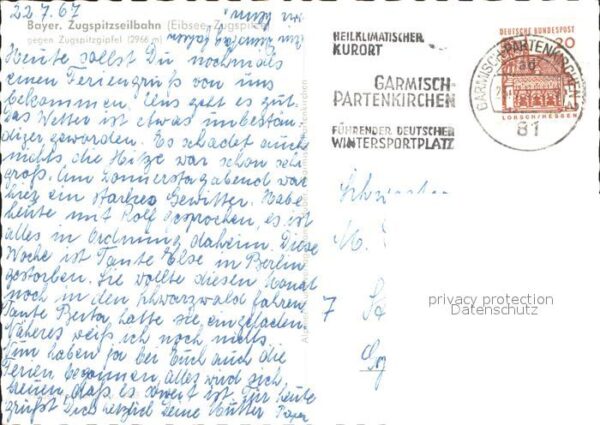 22.7.67
Bayer. Zugspitzseilbahn (Eibsee-Zugspitze)
gegen Zugspitzgipfel (2966 m)
Heute sollst Du nochmals
einen Feriengruß von uns
bekommen. Uns geht es gut.
Das Wetter ist etwas unbestän-
diger geworden. Es schadet auch
nichts die Hitze war schon sehr
groß. Am Donnerstagabend war
hier ein starkes Gewitter. Habe
heute mit Rolf gesprochen, es ist
alles in Ordnung daheim. Diese
Woche ist Tante Else in Berlin
gestorben. Sie wollte diesen Monat
noch in den Schwarzwald fahren
Tante Berta hatte sie eingeladen.
Näheres weiß ich noch nicht.
Nun haben ja bei Euch auch die
Ferien begonnen, alles wird sich
freuen, daß es soweit ist. Für heute
grüßt Dich herzlich Deine Mutter
HEILKLIMATISCHER
KURORT
GARMISCH-
PARTENKIRCHEN
FÜHRENDER DEUTSCHER
WINTERSPORTPLATZ
DEUTSCHE BUNDESPOST
20
LORSCH/HESSEN
GARMISCH-PARTENKIRCHEN
81
M.
7
privacy protection
Datenschutz